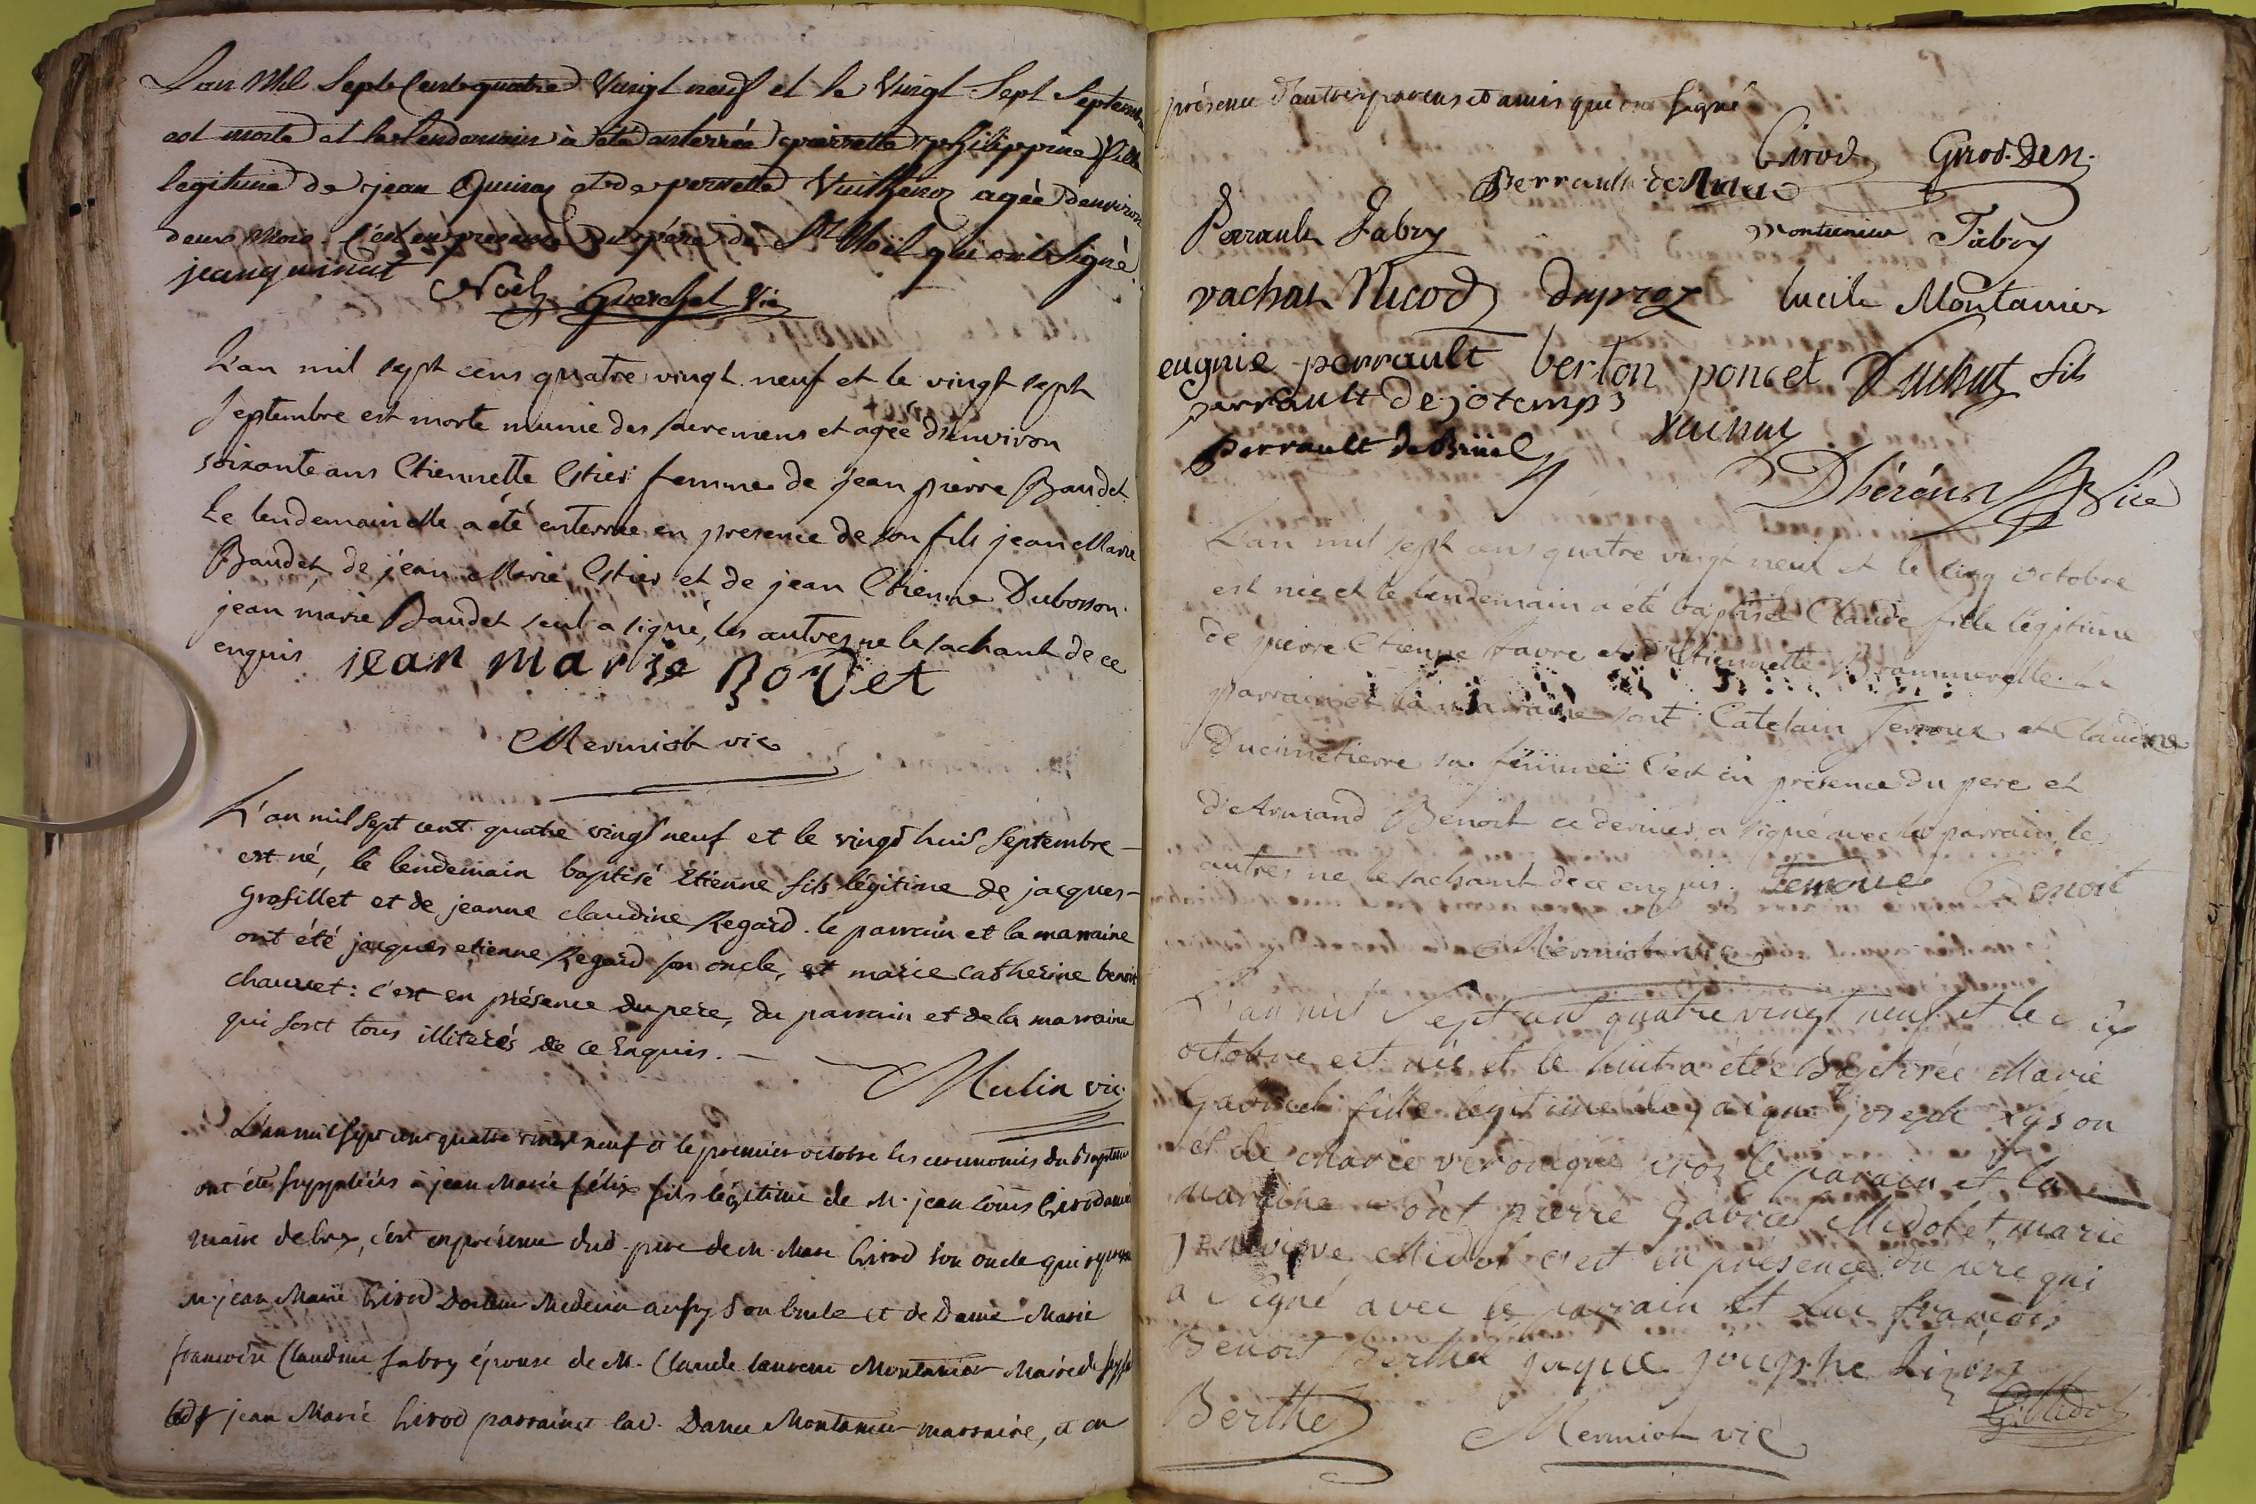 L'an Mil Sept Cent quatre Vingt neuf et le Vingt Sept Septembre
est morte et le Lendemain à été enterrée pierrette philippine fille
legitime de jean Quinas et de pernette Vuilleroz agée d'environ
deux Mois. C'est en presence du père de St Noël qui ont Signé
jean quinat Noël Guerchet Vic
L'an mil sept cens quatre vingt neuf et le vingt sept
septembre est morte munie des sacremens et agée d'environ
soixante ans Etiennette Estier femme de jean pierre Baudet.
Le lendemain elle a été enterrée en presence de son fils jean Marie
Baudet, de jean Marie Estier et de jean Etienne Dubosson.
jean marie Baudet seul a signé, les autres ne le sachant de ce
enquis. jean marie Bodet
Mermiot vic
L'an mil sept cent quatre vingt neuf et le vingt huit Septembre
est né, le lendemain baptisé Etienne fils légitime de jacques
Grosfillet et de jeanne claudine Regard. le parrain et la marraine
ont été jacques etienne Regard son oncle, et marie catherine benoit
chauvet: c'est en présence du pere, du parrain et de la marraine
qui sont tous illiterés de ce Enquis.
Mulin vic
L'an mil sept cent quatre vingt neuf et le premier octobre les ceremonies du Baptême
ont été suppléées à jean Marie félix fils légitime de M. jean Louis Girod
maire de Gex, c'est en présence dud. pere de M. Marc Girod son oncle
M. jean Marie Girod Docteur Medecin aussy son oncle et de Dame Marie
francoise Claudine fabry épouse de M. Claude laurent Montanier Maire de
led. jean Marie Girod parrain et lad. Dame Montanier marraine, et en
présence d'autres parens et amis qui ont signé
Girod Girod. Den.
Perrault de
Perrault Fabry Montanier Fabry
vachat Nicod Duproz lucile Montanier
eugnie perrault berton poncet Vuchat fils
perrault de jotemps
vachat
perrault de Brüel
Dhéréur Vice
L'an mil sept cens quatre vingt neuf et le cinq octobre
est née et le lendemain a été baptisée Claude fille légitime
de pierre Etienne favre et d'Etiennette Brammerelle. Le
parrain et la marraine sont Catelain Terroux et Claudine
Ducimetierre sa femme. C'est en présence du pere et
d'Armand Benoit ce dernier a signé avec le parrain, les
autres ne le sachant de ce enquis. Terroux Benoit
Mermiot vic
L'an mil Sept cent quatre vingt neuf et le six
octobre est née et le huit a été Baptisée Marie
Gabriel fille legitime de jacque joseph Lyson
et de marie veronique gros le parain et la
marraine sont pierre Gabriel Midol et marie
Genevieve Midol c'est en présence du pere qui
a Signé avec le parrain et Luc françois
Benoit Berthet jaque jouesphe Lizon
Berthet Mermiot vic G. Midol